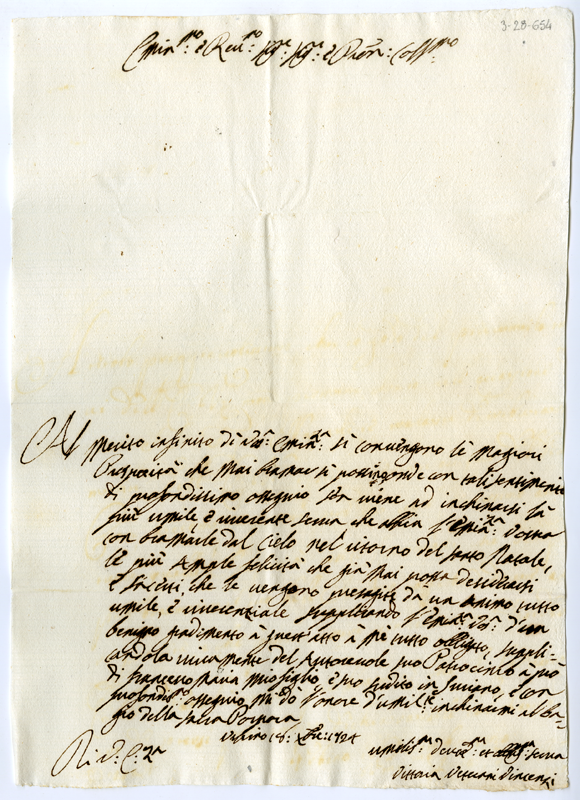 3-28-654
Emin.mo e Rev.mo Sig.e Sig.e e Pad.n: Coll.mo
Al Merito infinito di Vra: Emin.za si convengono le Magiori
Prosperità che Mai bramar si possino, onde con tali sentimenti
di profondissimo ossequio sen viene ad inchinarsi la
più umile e riverente serva che abbia l'Emin.za Vostra
con bramarle dal Cielo nel ritorno del santo Natale,
le più ample felicità che già Mai possa desiderarsi
e che le vengono presagite da un animo tutto
umile, è riverentiale supplicando l'Emin.za Vra: d'un
benigno gradimento à quest'atto à Me tutto obligato, suppli-
candola vivamente del Autorevole suo Patrocinio à pò
di francesco Maria Mio figlio è suo sudito in, è con
profondis.o ossequio Mi dò l'onore d'umil.te inchinarmi al ba-
gio della sacra Porpora
18: Xbre: 1724
Di V: E: Za
umilis.ma devot.ma et serva
Vittoria Vincenzi